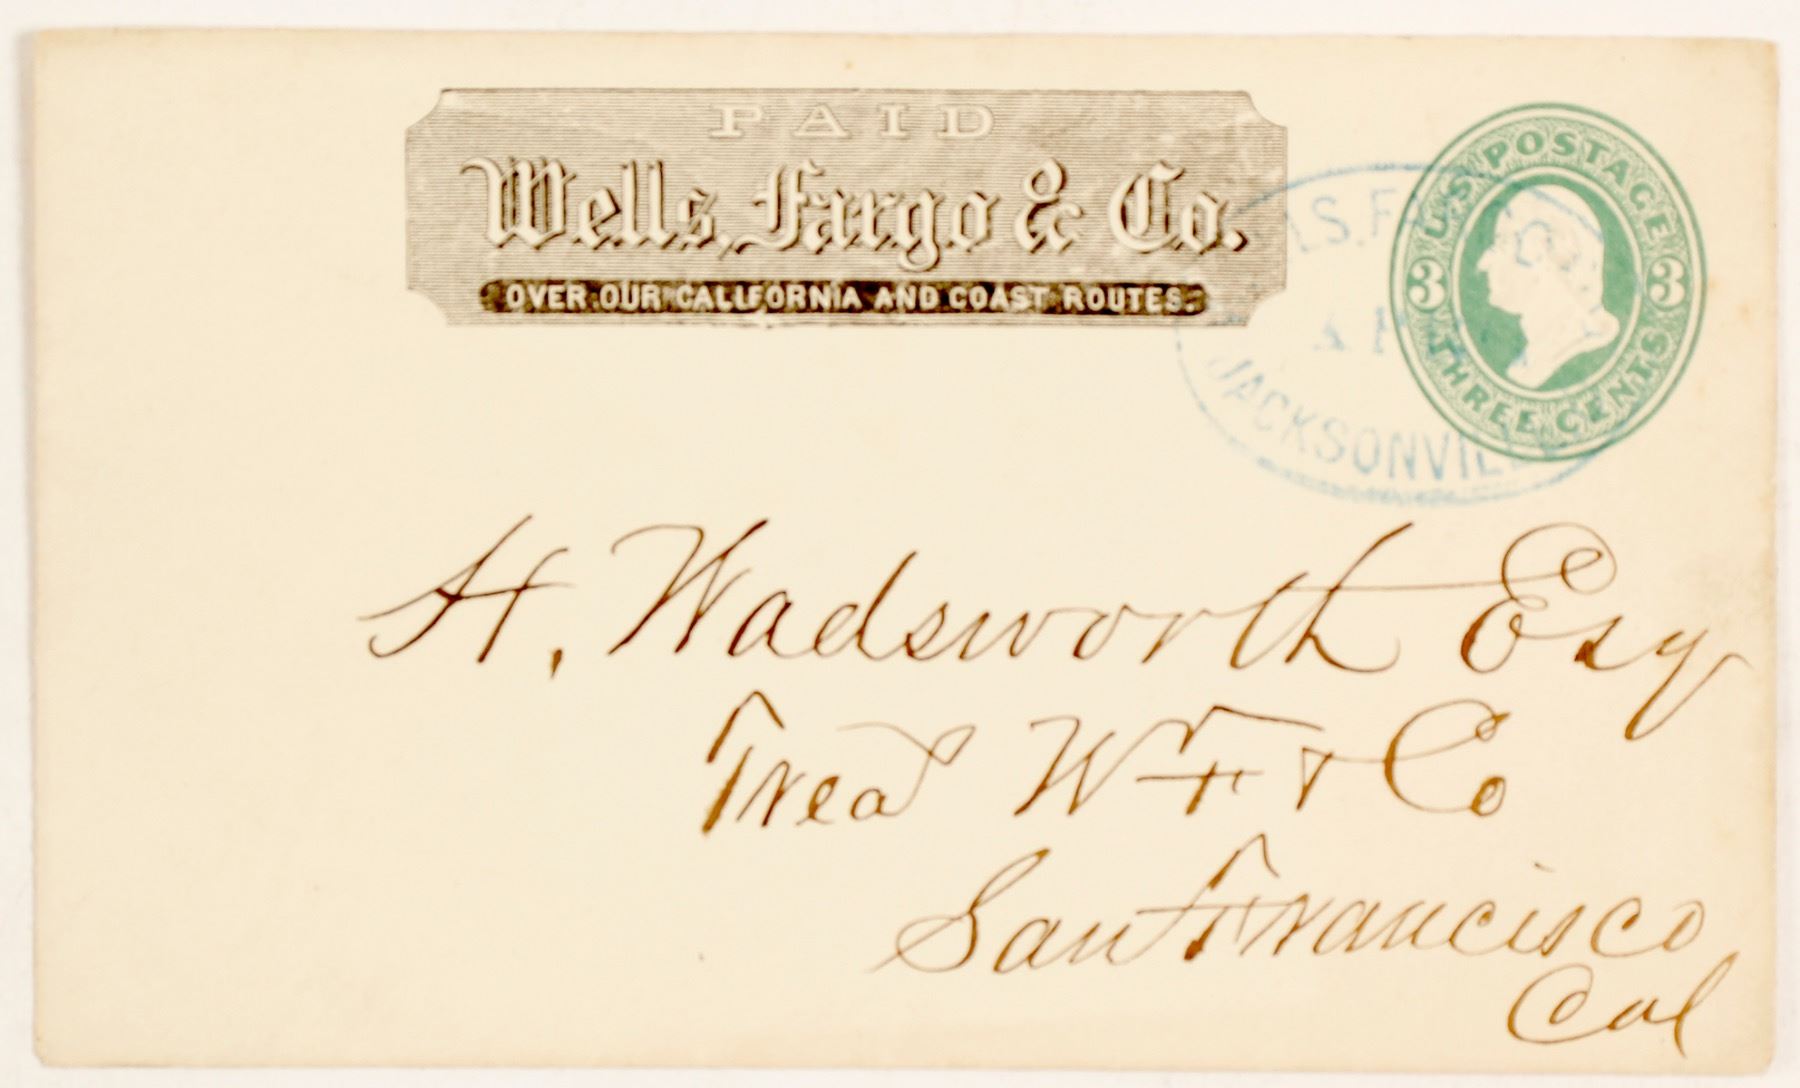 PAID
Wells, Fargo & Co.
OVER OUR CALIFORNIA AND COAST ROUTES.
U.S. POSTAGE
3 3
THREE CENTS
JACKSONVILLE
H. Wadsworth Esq
Treas W F & Co
San Francisco
Cal